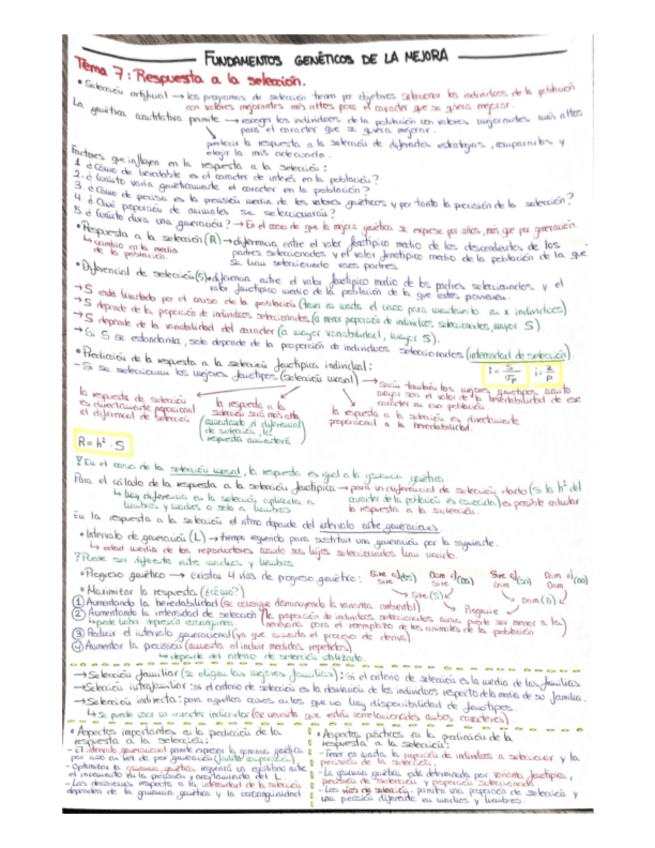 FUNDAMENTOS GENÉTICOS DE LA MEJORA
Tema 7: Respuesta a la selección.
• Selección artificial → los programas de selección tienen por objetivos seleccionar los individuos de la población
con valores mejorantes más altos para el carácter que se quiera mejorar.
La genética cuantitativa permite → escoger los individuos de la población con valores mejorantes más altos
para el carácter que se quiera mejorar.
predecir la respuesta a la selección de diferentes estrategias, compararlas y
elegir la más adecuada.
Factores que influyen en la respuesta a la selección:
1. ¿Cómo de heredable es el carácter de interés en la población?
2. ¿Cuánto varía genéticamente el carácter en la población?
3. ¿Cómo de precisa es la predicción media de los valores genéticos y por tanto la precisión de la selección?
4. ¿Qué proporción de animales se seleccionarán?
5. ¿Cuánto dura una generación? → En el caso de que la mejora genética se exprese por años, más que por generación.
• Respuesta a la selección (R) → diferencia entre el valor fenotípico medio de los descendientes de los
↳ cambio en la media de la población.
padres seleccionados y el valor fenotípico medio de la población de la que
se han seleccionado esos padres.
• Diferencial de selección (S) → diferencia entre el valor fenotípico medio de los padres seleccionados y el
valor fenotípico medio de la población de la que éstos provienen.
→ S está limitado por el censo de la población
→ S depende de la proporción de individuos seleccionados (a menor proporción de individuos seleccionados, mayor S)
→ S depende de la variabilidad del carácter (a mayor variabilidad, mayor S).
→ Si S se estandariza, solo depende de la proporción de individuos seleccionados (intensidad de selección)
• Predicción de la respuesta a la selección fenotípica individual:
i = S/σp
i = z/p
- Si se seleccionan los mejores fenotipos (selección masal) → serán también los mejores genotipos cuanto
mayor sea el valor de la heredabilidad de ese
carácter en esa población.
la respuesta de selección es directamente proporcional al diferencial de selección
la respuesta a la selección será más alta (aumentando el diferencial de selección, la respuesta aumentará
la respuesta a la selección es directamente proporcional a la heredabilidad.
R = h² · S
En el caso de la selección masal, la respuesta es igual a la ganancia genética.
Para el cálculo de la respuesta a la selección fenotípica → para un diferencial de selección dado (si la h² del
carácter de la población es conocida) es posible calcular
la respuesta a la selección.
↳ hay diferencia en la selección aplicada a
hembras y machos o solo a hembras
En la respuesta a la selección el ritmo depende del intervalo entre generaciones.
• Intervalo de generación (L) → tiempo requerido para sustituir una generación por la siguiente.
↳ edad media de los reproductores cuando sus hijos seleccionados han nacido.
Puede ser diferente entre machos y hembras
• Progreso genético → existen 4 vías de progreso genético:
Sire of Sire (SS)
Dam of Sire (DS)
Sire of Dam (SD)
Dam of Dam (DD)
Sire (S)
Dam (D)
Progenie
• Maximizar la respuesta (¿cómo?)
① Aumentando la heredabilidad (se consigue disminuyendo la varianza ambiental).
② Aumentando la intensidad de selección (la proporción de individuos seleccionados nunca puede ser menor a la
necesaria para el reemplazo de los animales de la población
③ Reducir el intervalo generacional (ya que aumenta el proceso de deriva)
④ Aumentar la precisión (aumenta al incluir medidas repetidas)
↳ depende del criterio de selección utilizado.
→ Selección familiar (se eligen las mejores familias): si el criterio de selección es la media de las familias
→ Selección intrafamiliar: si el criterio de selección es la desviación de los individuos respecto de la media de su familia.
→ Selección indirecta: para aquellos casos en los que no hay disponibilidad de fenotipos.
↳ se puede usar un carácter indicador (se necesita que estén correlacionados ambos caracteres)
• Aspectos importantes en la predicción de la
respuesta a la selección:
- El intervalo generacional puede expresar la ganancia genética
por año en vez de por generación
- Optimizar la ganancia genética requerirá un equilibrio entre
el incremento en la precisión y acortamiento del L.
- Las decisiones respecto a la intensidad de la selección
dependen de la ganancia genética y la consanguinidad
• Aspectos prácticos en la predicción de la
respuesta a la selección:
- Tener en cuenta la proporción de individuos a seleccionar y la
precisión de la selección.
- La ganancia genética está determinada por varianza fenotípica,
precisión de selección y proporción seleccionada.
- Las vías de selección permiten una proporción de selección y
una precisión diferente en machos y hembras.